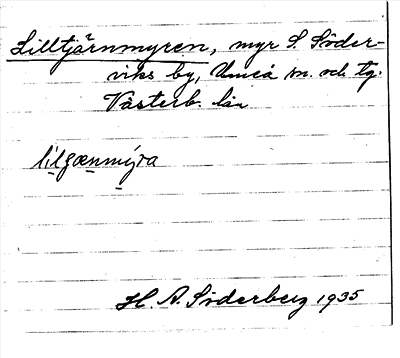 Lilltjärnmyren, myr S. Söder-
viks by, Umeå sn. och tg.
Västerb. län
H. A. Söderberg 1935